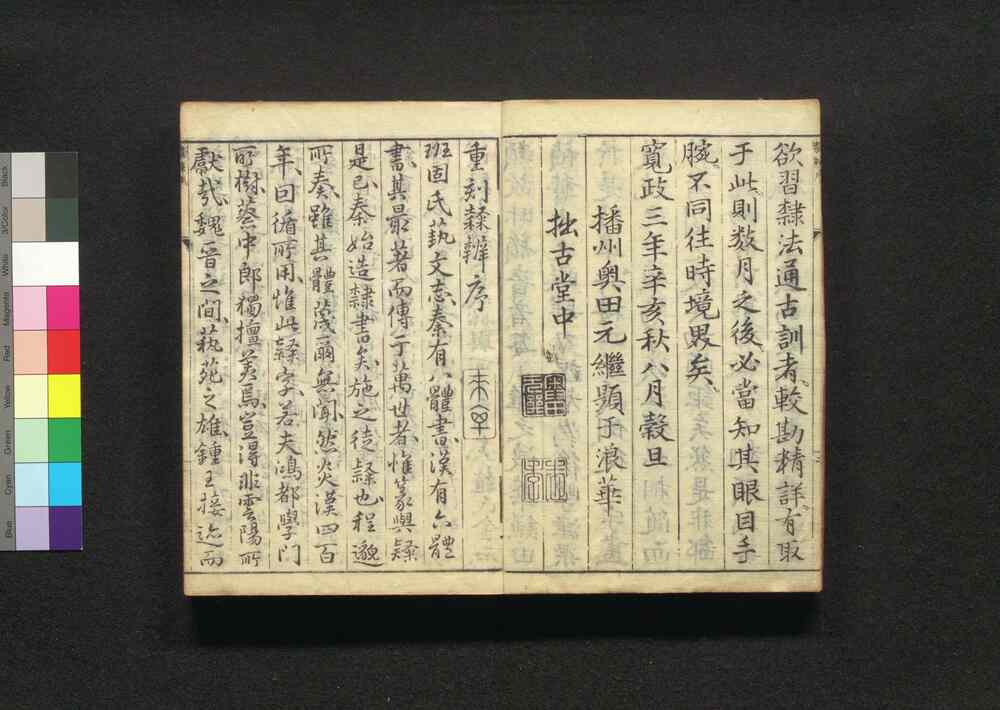 欲習隸法通古訓者較勘精詳有取
于此則数月之後必當知其眼目手
腕不同往時境界矣
寬政三年辛亥秋八月穀旦
播州奥田元繼顕于浪華
拙古堂中
重刻隸辨序
班固氏蓺文志秦有八體書漢有六體
書其最著而傳于萬世者惟篆與隸
是已秦始造隸書矣施之徒隸也程邈
所奏雖其體蔑爾無聞然炎漢四百
年因循所用惟此隸字若夫鴻都學門
所樹蔡中郎獨擅美焉豈得非雲陽所
獻哉魏晉之間蓺苑之雄鍾王接迹而
Black
3/Color
White
Magenta
Red
Yellow
Green
Cyan
Blue